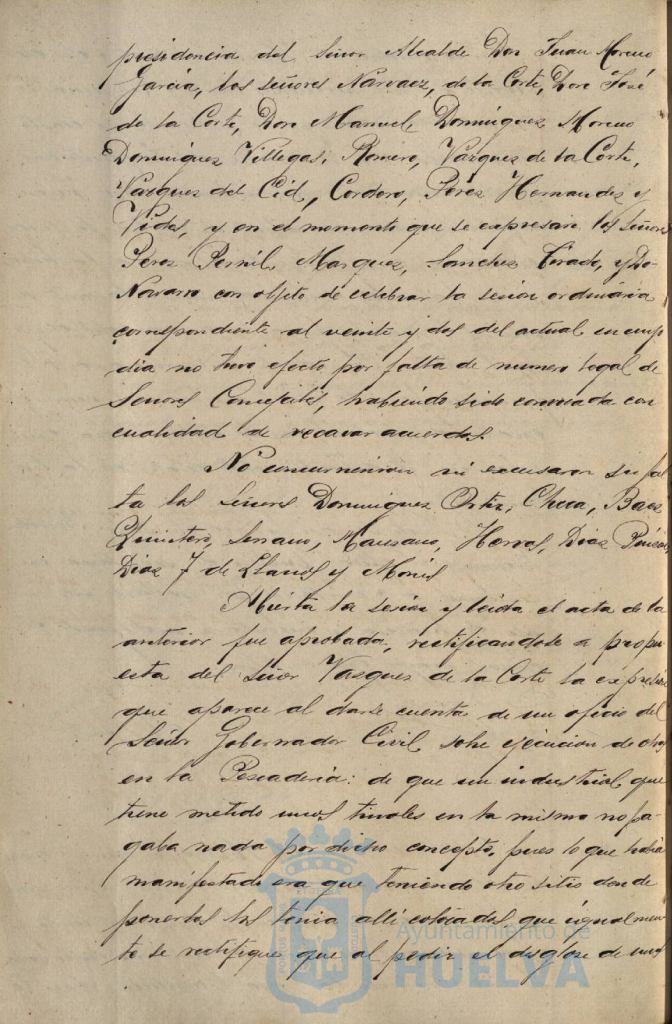 presidencia del Señor Alcalde Don Juan Moreno
Garcia, los señores Narvaez, de la Corte, Don José
de la Corte, Don Manuel Dominguez Moreno
Dominguez Villegas, Romero, Vazquez de la Corte,
Vazquez del Cid, Cordero, Pérez Hernandez y
Vides, y en el momento que se expresan los Señores
Pérez Pernil, Marquez, Sanchez Tirado, y De
Navarro con objeto de celebrar la sesion ordinaria
correspondiente al veinte y dos del actual en cuyo
dia no tuvo efecto por falta de numero legal de
Señores Concejales, habiendo sido convocada con
cualidad de recavar acuerdos.
No concurrieron ni excusaron su fal
ta los Señores Dominguez Ortiz, Checa, Baez
Quintero, Serrano, Manzano, Hervas, Diaz
Diaz F de Llanos y Monis
Abierta la sesion y leida el acta de la
anterior fue aprobada, rectificandose a propu
esta del Señor Vazquez de la Corte la expresion
que aparece al darse cuenta de un oficio del
Señor Gobernador Civil sobre ejecucion de obras
en la Pescaderia: de que un industrial que
tiene metido unos tinales en la misma no pa-
gaba nada por dicho concepto, pues lo que habia
manifestado era que teniendo otro sitio donde
ponerlos los tenia alli colocados, que igualmen
te se rectifique que al pedir el desglose de unos
Ayuntamiento de
HUELVA